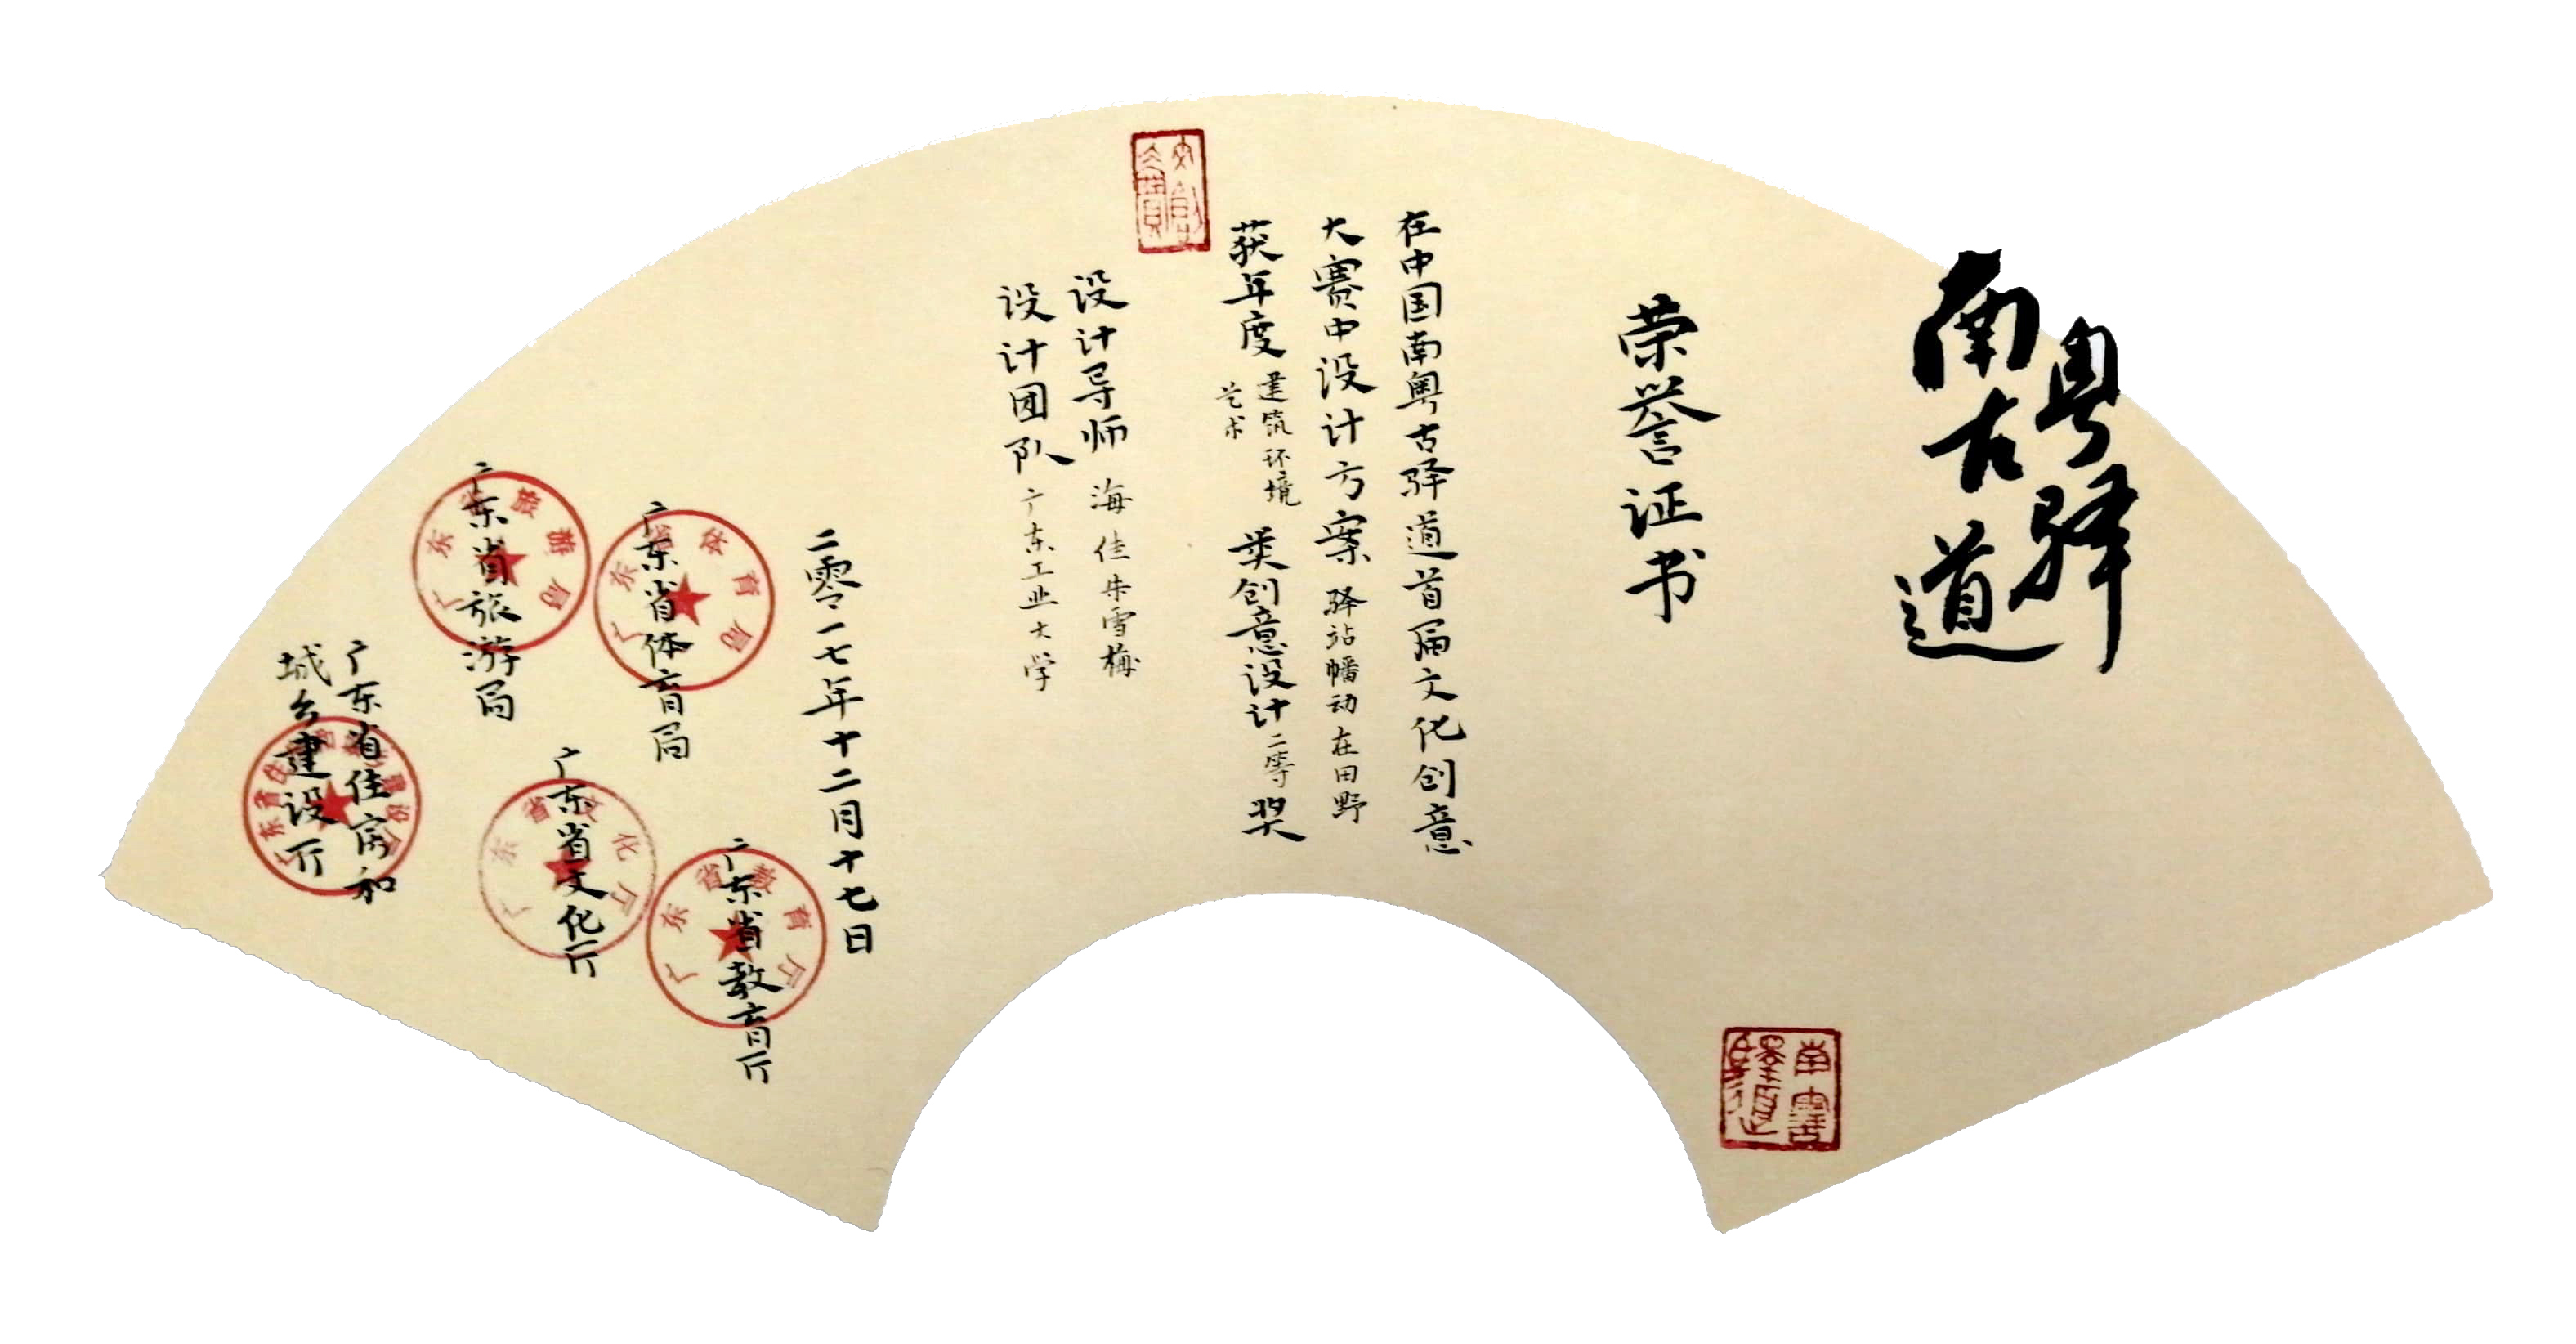 南粤古驿道
荣誉证书
在中国南粤古驿道首届文化创意
大赛中设计方案 驿站幡动在田野
获年度 建筑环境艺术 类创意设计 二等 奖
设计导师 海佳 朱雪梅
设计团队 广东工业大学
二零一七年十二月十七日
广东省体育局
广东省教育厅
广东省旅游局
广东省文化厅
广东省住房和
城乡建设厅